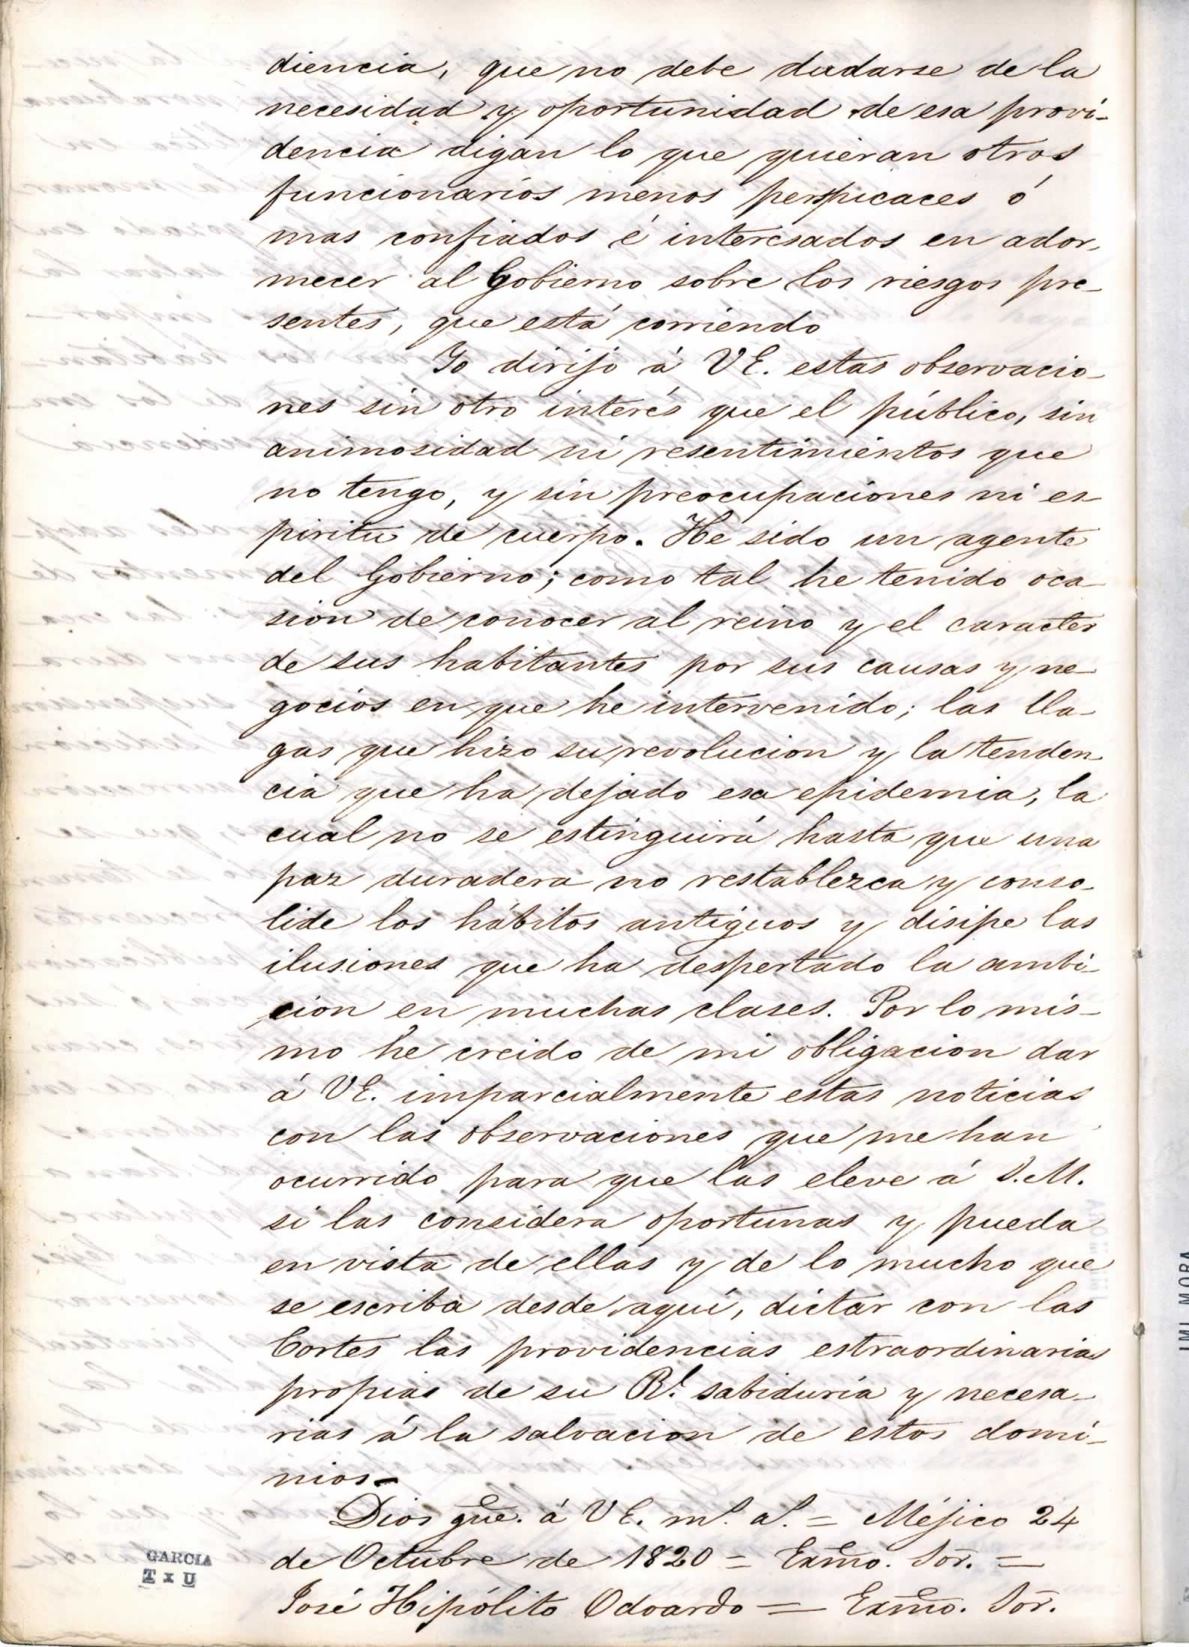 diencia, que no debe dudarse de la
necesidad y oportunidad de esa provi-
dencia digan lo que quieran otros
funcionarios menos perspicaces ó
mas confiados é interesados en ador-
mecer al Gobierno sobre los riesgos pre-
sentes, que está corriendo
Yo dirijo á VE. estas observacio-
nes sin otro interés que el público, sin
animosidad ni resentimientos que
no tengo, y sin preocupaciones ni es-
piritu de cuerpo. He sido un agente
del Gobierno; como tal he tenido oca-
sion de conocer al reino y el caracter
de sus habitantes por sus causas y ne-
gocios en que he intervenido; las lla-
gas que hizo su revolucion y la tenden-
cia que ha dejado esa epidemia, la
cual no se estinguirá hasta que una
paz duradera no restablezca y conso-
lide los hábitos antiguos y disipe las
ilusiones que ha despertado la ambi-
cion en muchas clases. Por lo mis-
mo he creido de mi obligacion dar
á VE. imparcialmente estas noticias
con las observaciones que me han
ocurrido para que las eleve á S.M.
si las considera oportunas y pueda
en vista de ellas y de lo mucho que
se escriba desde aquí, dictar con las
Cortes las providencias estraordinarias
propias de su Rl. sabiduría y necesa-
rias á la salvacion de estos domi-
nios.
Dios gue. á VE. ms. as. = Méjico 24
de Octubre de 1820 = Exmo. Sor. =
José Hipólito Odoardo = Exmo. Sor.
GARCIA
T x U
IMI MORA